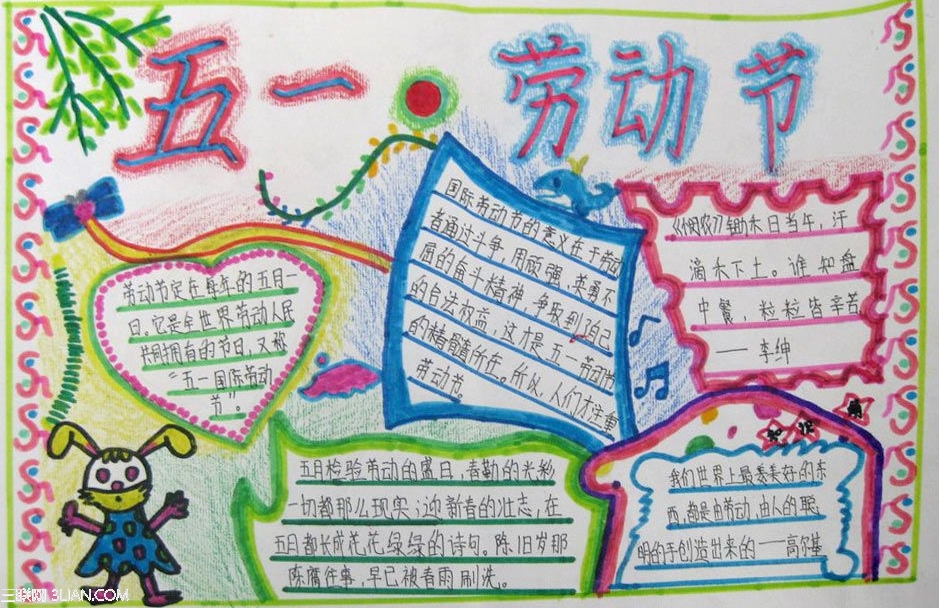 五一 劳动节
劳动节定在每年的五月一
日。它是全世界劳动人民
共同拥有的节日，又称
“五一国际劳动
节”。
国际劳动节的意义在于劳动
者通过斗争，用顽强、英勇不
屈的奋斗精神，争取到了自己
的合法权益，这才是五一劳动节
的精髓所在。所以，人们才注重
劳动节。
《悯农》锄禾日当午，汗
滴禾下土。谁知盘
中餐，粒粒皆辛苦
——李绅
五月检验劳动的盛日，春勤的光彩
一切都那么现实；迎新春的壮志，在
五月都长成花花绿绿的诗句。陈旧岁那
陈腐往事，早已被春雨刷洗。
知识
我们世界上最美好的东
西，都是由劳动，由人的聪
明的手创造出来的——高尔基
三联网 3LIAN.COM